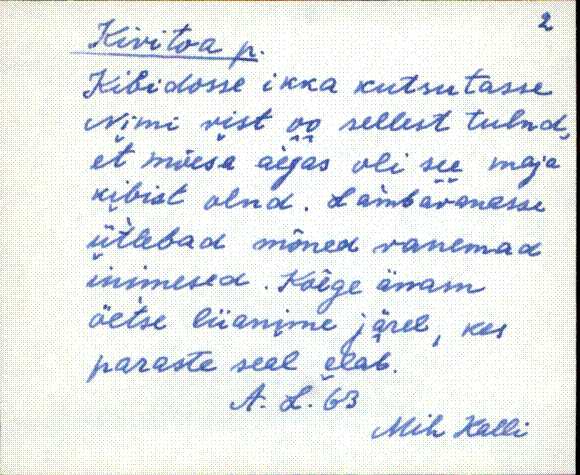 2
Kivitoa p.
Kibidosse ikka kutsutasse
Nimi vist oo sellest tulnd,
et mõesa aegas oli see maja
kibist olnd. Lambavanasse
ütlebad mõned vanemad
inimesed. Kõige änam
öetse liianime järel, kes
paraste seal elab.
A. L. 63
Mih Kalli